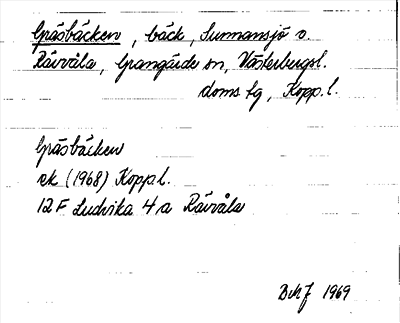 Gräsbäcken, bäck, Sunnansjö o.
Rävvåla, Grangärde sn, Västerbergsl.
doms fg, Kopp. l.
Gräsbäcken
ek (1968) Kopp.l.
12 F Ludvika 4 a Rävvåla
1969